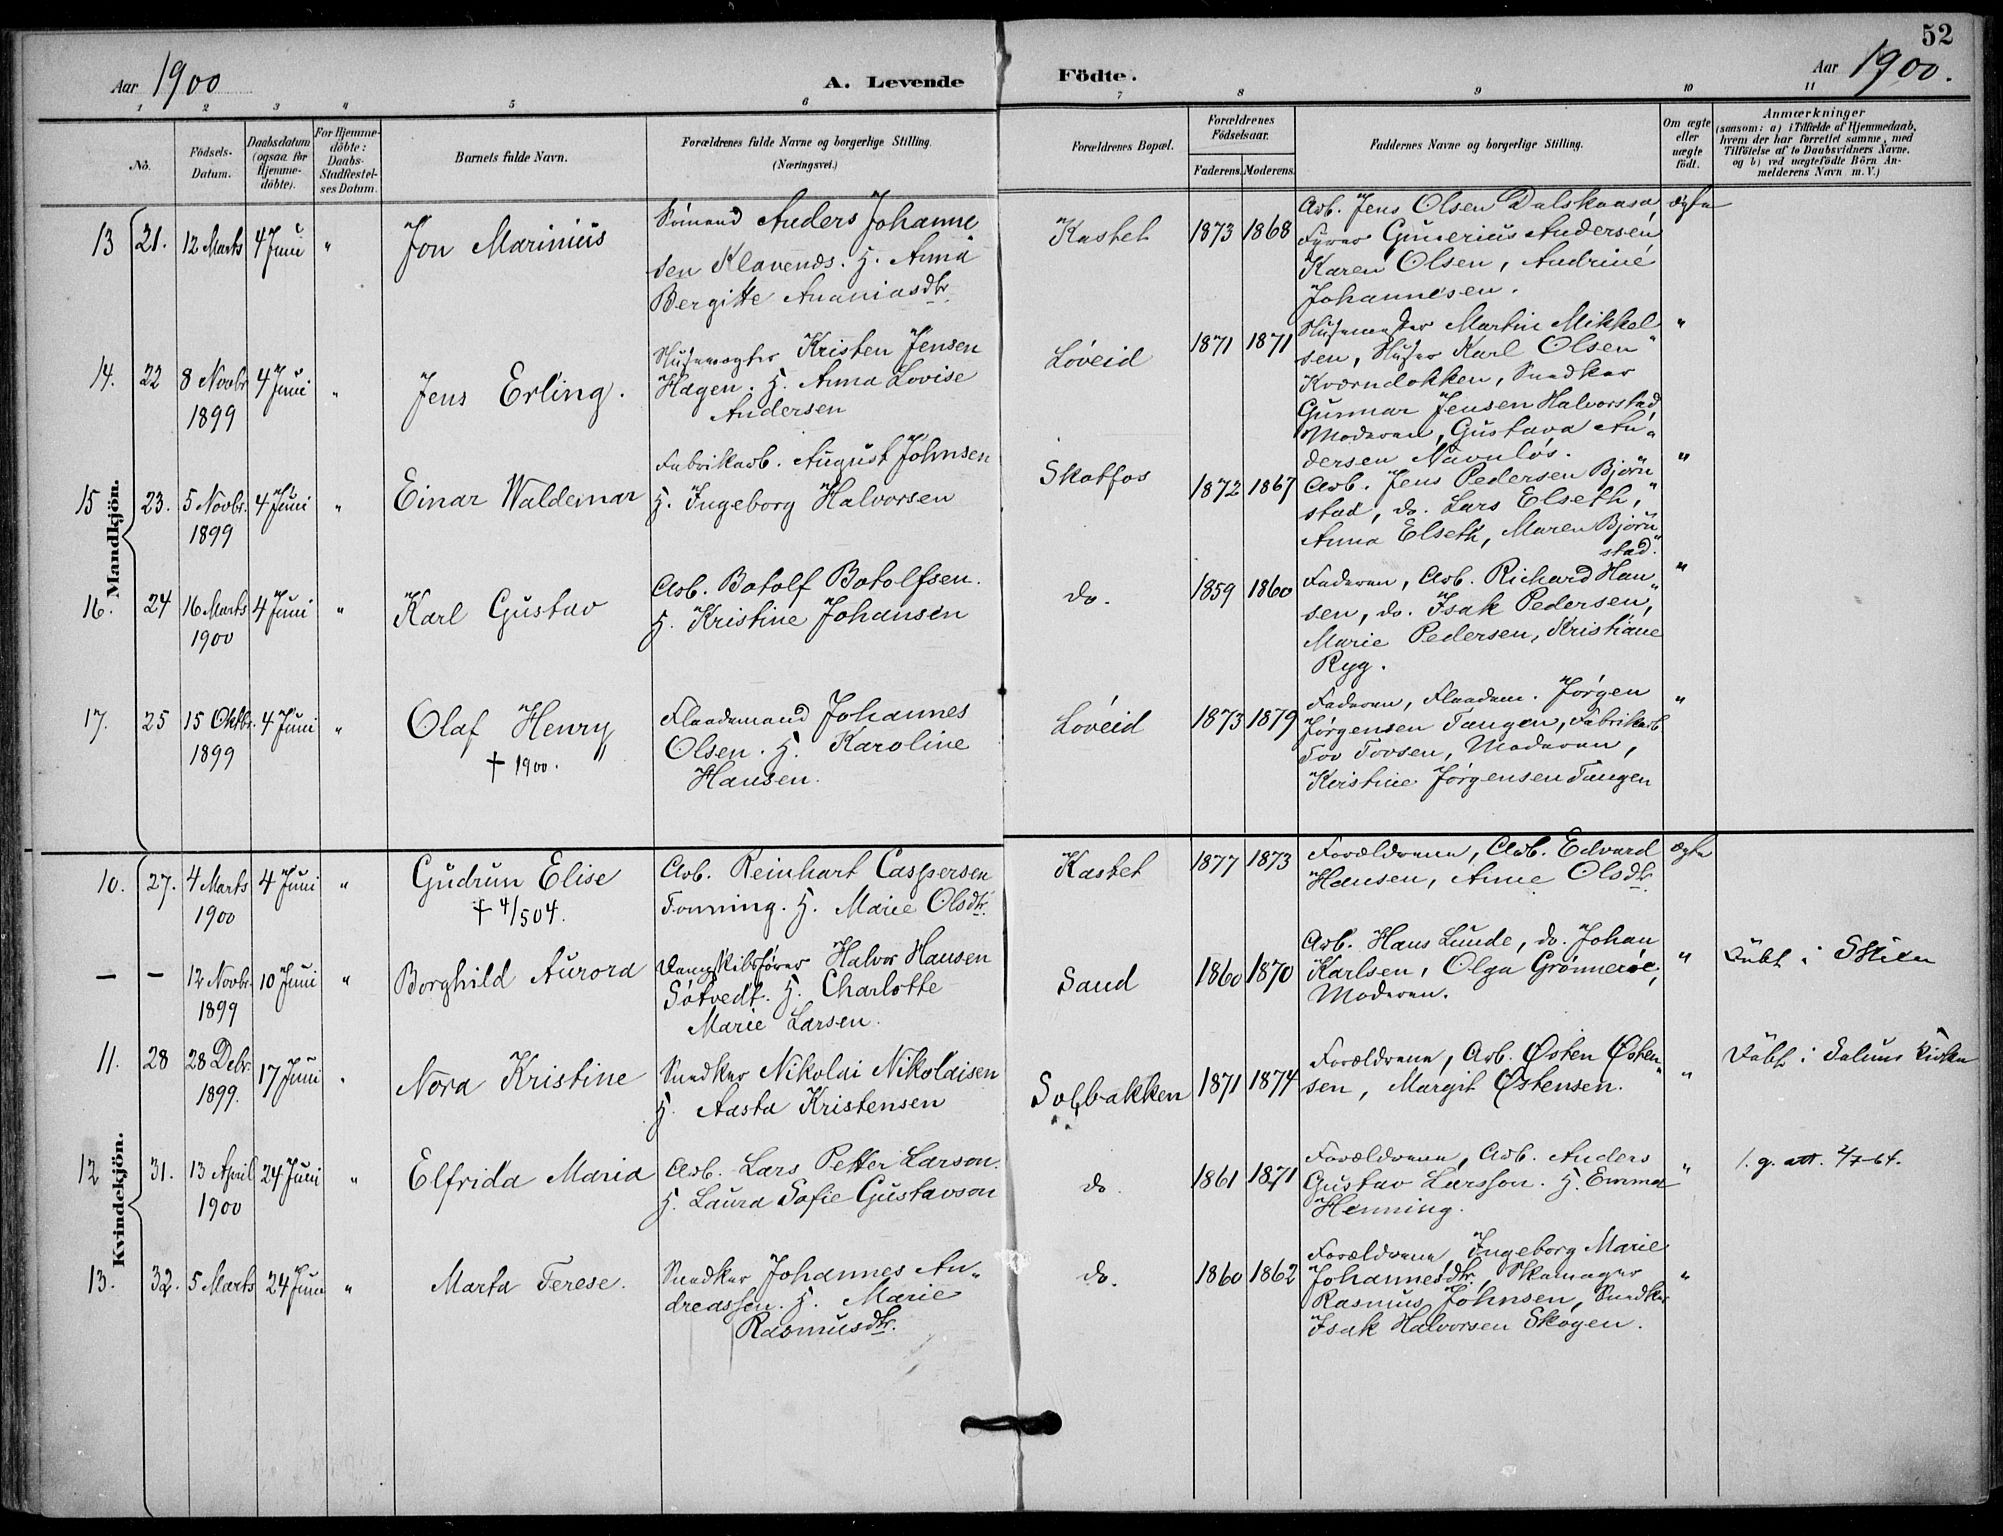 52
Aar 1900
A. Levende
Födte.
Aar 1900.
1 2 3 4 5 6 7 8 9 10 11
No.
Födsels-
Datum.
Daabsdatum
(ogsaa for
Hjemme-
döbte).
For Hjemme-
döbte:
Daabs-
Stadfæstel-
ses Datum.
Barnets fulde Navn.
Forældrenes fulde Navne og borgerlige Stilling.
(Næringsvei.)
Forældrenes Bopæl.
Forældrenes
Födselsaar.
Faderens. Moderens.
Faddernes Navne og borgerlige Stilling.
Om ægte
eller
uægte
födt.
Anmærkninger
(saasom: a) i Tilfælde af Hjemmedaab,
hvem der har forrettet samme, med
Tilföielse af to Daabsvidners Navne,
og b) ved uægtefödte Börn An-
melderens Navn m. V.)
Mandkjön.
13 21. 12 Marts 4 Juni "
Jon Marinius
Sömand Anders Johanne
sen Klavends. H. Anna
Bergitte Ananiasdtr.
Kastet 1873 1868
Arb. Jens Olsen Dalskaasa,
Fyrer Gunerius Andersen
Karen Olsen, Andrine
Johannesen.
ægte
14. 22 8 Novbr 4 Juni "
1899
Jens Erling.
Slusevogter Kristen Jensen
Hagen. H. Anna Lovise
Andersen
Løveid 1871 1871
Slusemester Martin Mikkel
sen, Karl Olsen
Kværndokken, Snedker
Gunnar Jensen Halvorstad,
Moderen, Gustava An-
dersen Navnløs.
"
15 23. 5 Novbr. 4 Juni "
1899
Einar Waldemar
Fabrikarb. August Johnsen
H. Ingeborg Halvorsen
Skotfos 1872 1867
Arb. Jens Pedersen Bjørn
stad, do. Lars Elseth,
Anna Elseth, Maren Bjørn
stad.
"
16. 24 16 Marts 4 Juni "
1900
Karl Gustav
Arb. Botolf Botolfsen.
H. Kristine Johansen
do. 1859 1860
Faderen, Arb. Richard Han
sen, do. Isak Pedersen,
Marie Pedersen, Kristiane
Ryg.
"
17. 25 15 Oktbr. 4 Juni "
1899
Olaf Henry
† 1900.
Flaademand Johannes
Olsen. H. Karoline
Hansen.
Løveid 1873 1879
Faderen, Flaadem. Jørgen
Jørgensen Tangen, Fabrikarb
Tov Tovsen, Moderen,
Kirstine Jørgensen Tangen
"
Kvindekjön.
10. 27. 4 Marts 4 Juni "
1900
Gudrun Elise
† 4/5 04.
Arb. Reinhart Caspersen
Tonning. H. Marie Olsdtr.
Kastet 1877 1873
Forældrene, Arb. Edvard
Hansen, Anne Olsdtr.
ægte
— — 12 Novbr. 10 Juni "
1899
Borghild Aurora
Dampskibsfører Halvor Hansen
Søtvedt. H. Charlotte
Marie Larsen.
Sand 1860 1870
Arb. Hans Lunde, do. Johan
Karlsen, Olga Grønnerøe,
Moderen.
"
Døbt i Skien
11. 28 28 Debr. 17 Juni "
1899.
Nora Kristine
Snedker Nikolai Nikolaisen
H. Aasta Kristensen
Solbakken 1871 1874
Forældrene, Arb. Østen Østen
sen, Margit Østensen.
"
Døbt i Solum Kirke
12 31. 13 April 24 Juni "
1900
Elfrida Maria
Arb. Lars Petter Larson.
H. Laura Sofie Gustavson
do 1861 1871
Forældrene, Arb. Anders
Gustav Larsson. H. Emma
Henning.
"
1. g. att. 2/7-64.
13. 32. 5 Marts 24 Juni "
Marta Terese.
Snedker Johannes An-
dreassen. H. Marie
Rasmusdtr.
do. 1860 1862
Forældrene, Ingeborg Marie
Johannesdtr. Skomager
Rasmus Johnsen, Snedker
Isak Halvorsen Skogen.
"